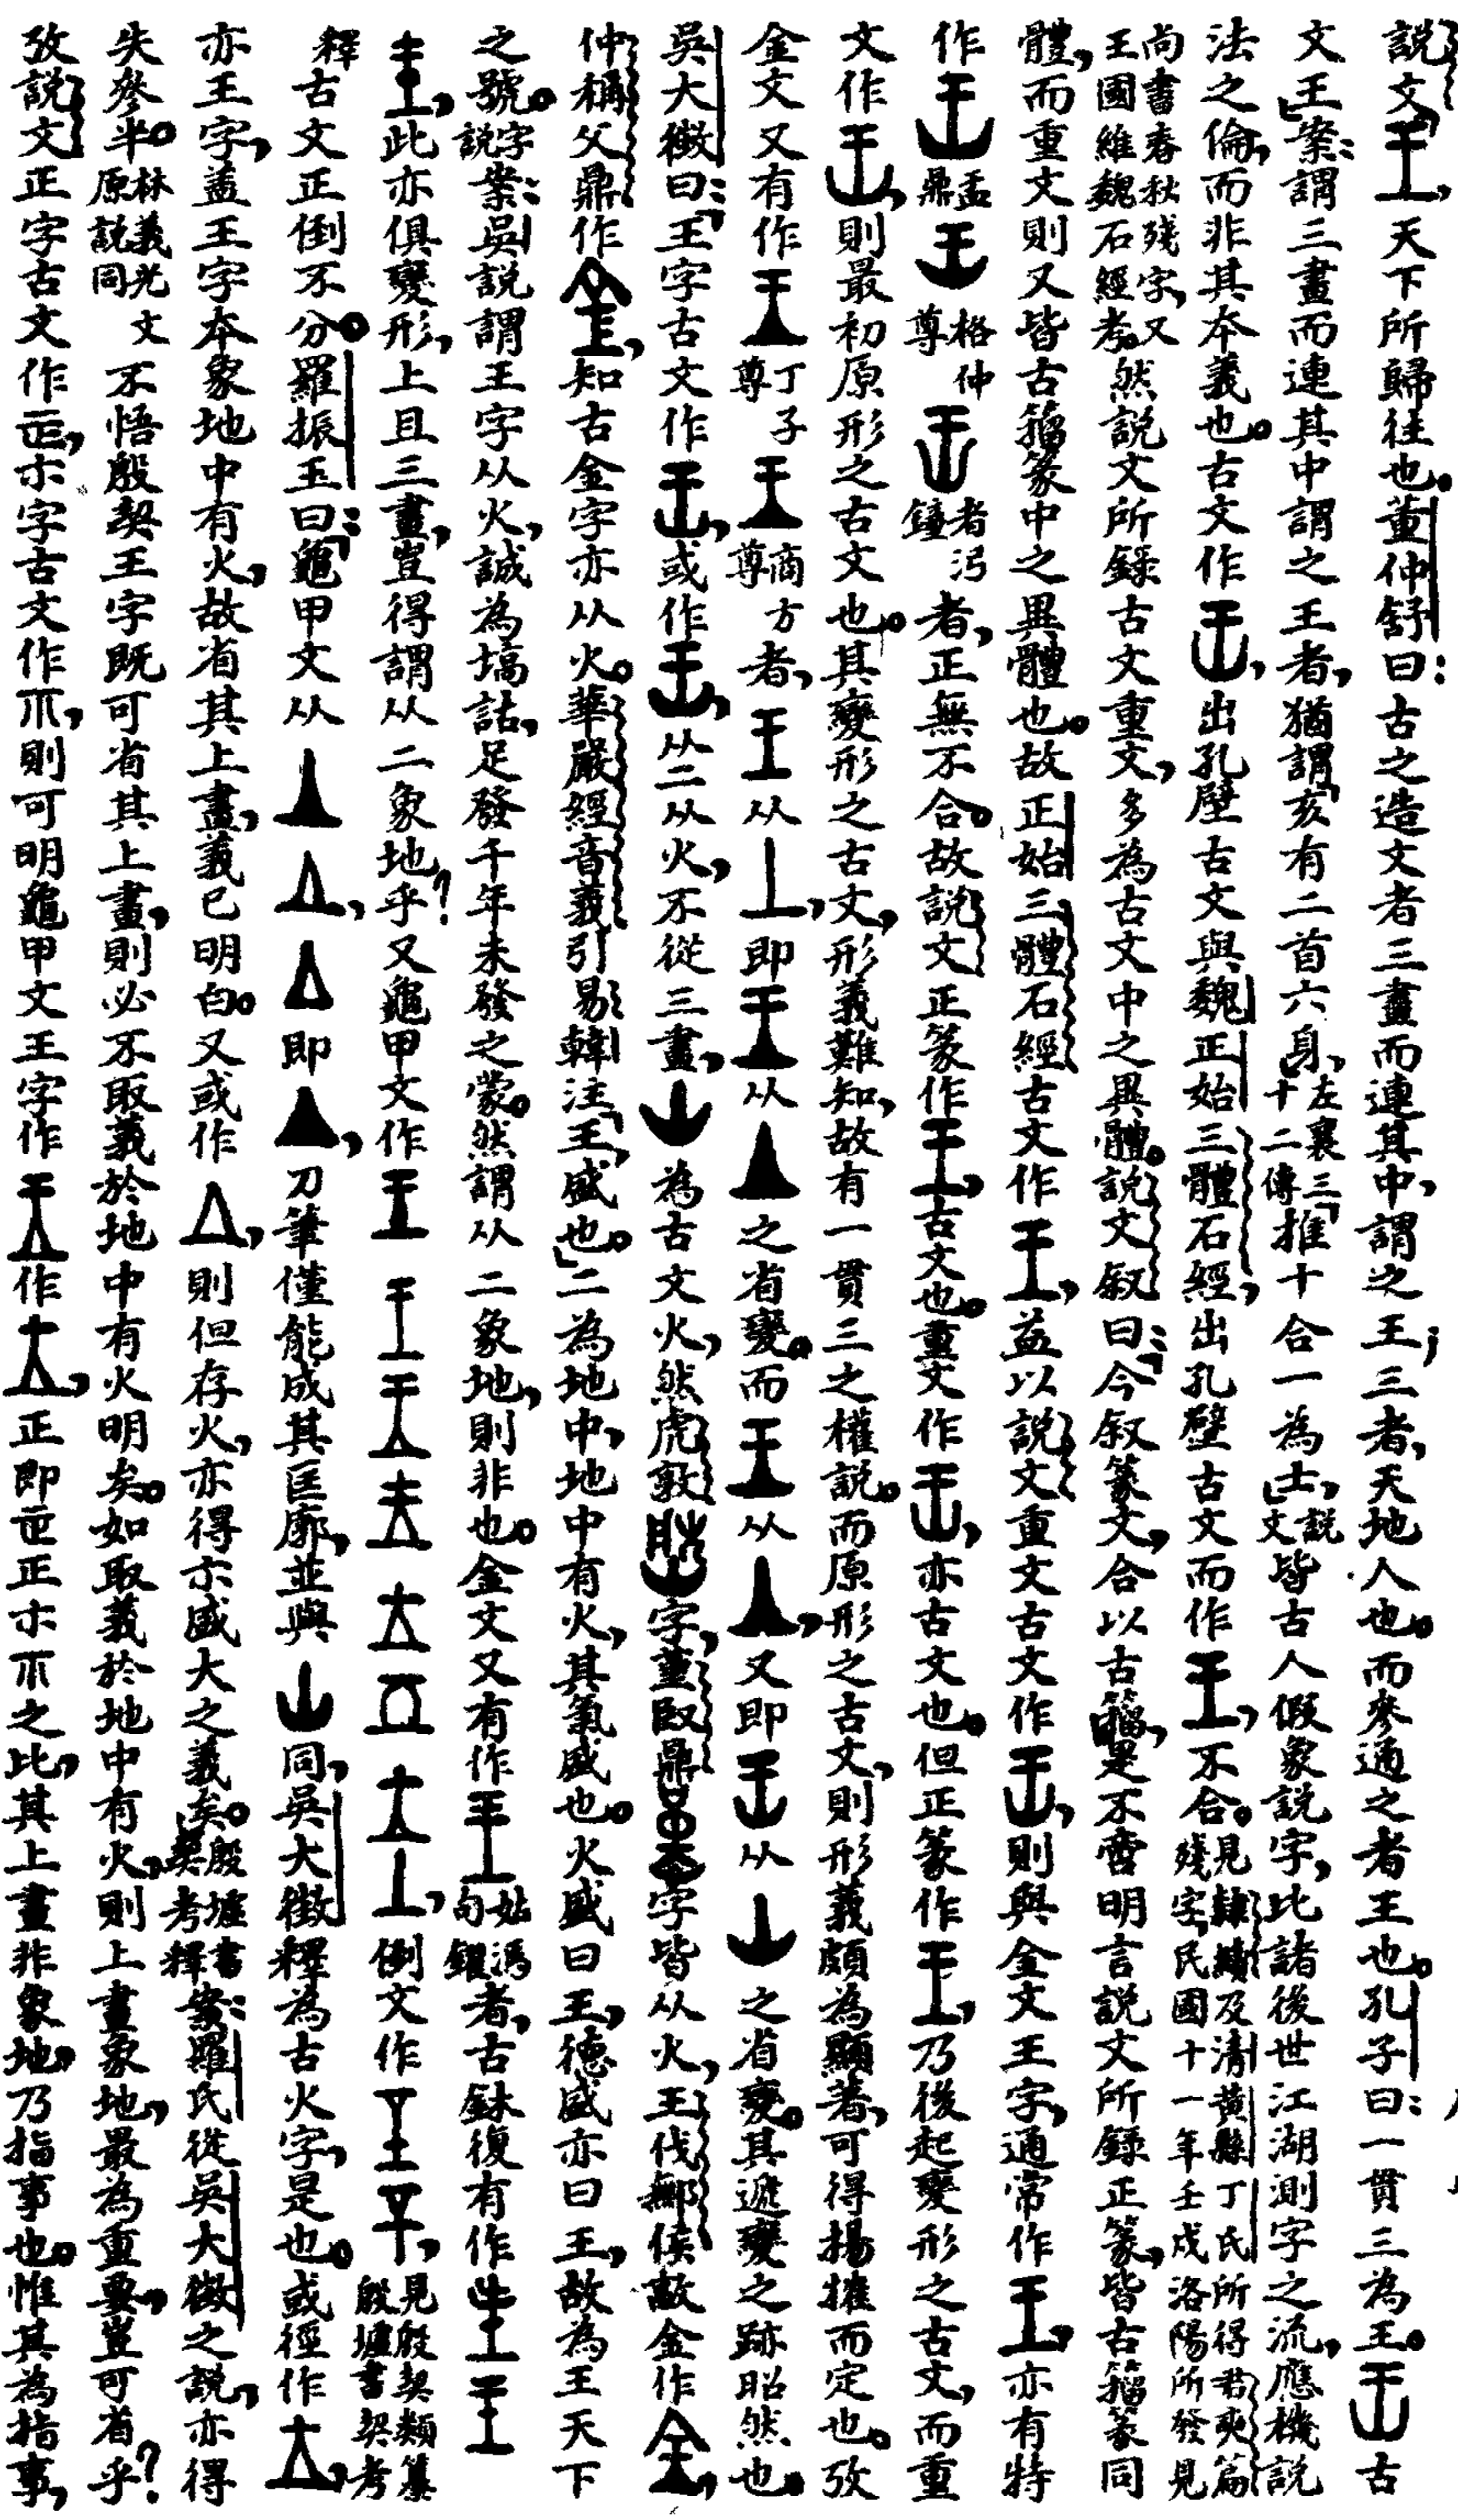 説文王，天下所歸往也。董仲舒曰：古之造文者三畫而連其中，謂之王；三者，天地人也。而參通之者王也。孔子曰：一貫三為王。古
文王」案：謂三畫而連其中謂之王者，猶謂「亥有二首六身，」左襄三十二傳「推十合一為士，」説文皆古人假象説字，比諸後世江湖測字之流，應機説
法之倫，而非其本義也。古文作，出孔壁古文與魏正始三體石經，出孔壁古文而作，不合。見隸續及清黃縣丁氏所得君奭篇殘字，民國十一年壬戌洛陽所發見
尚書春秋殘字，又王國維魏石經考。然説文所錄古文重文，多為古文中之異體。説文叙曰：「今叙篆文，合以古籀，」是不啻明言説文所錄正篆，皆古籀篆同
體，而重文則又皆古籀篆中之異體也。故正始三體石經古文作，益以説文重文古文作，則與金文王字，通常作，亦有特
作盂鼎格仲尊者沪鐘者，正無不合。故説文正篆作，古文也。重文作，亦古文也。但正篆作，乃後起變形之古文，而重
文作，則最初原形之古文也。其變形之古文，形義難知，故有一貫三之權説。而原形之古文，則形義頗為顯著，可得揚搉而定也。攷
金文又有作丁子尊商方尊者，从，即从之省變。而从，又即从之省變。其遞變之跡昭然也。
吳大澂曰：「王字古文作，或作，从二从火，不從三畫，為古文火，然虎敦字，堇臤鼎字皆从火，王伐鄦侯敼金作，
仲稱父鼎作，知古金字亦从火。華嚴經音義引易韓注「王，盛也。」二為地中，地中有火，其氣盛也。火盛曰王，德盛亦曰王，故為王天下
之號。字説案：吳説謂王字从火，誠為塙詁，足發千年未發之蒙。然謂从二象地，則非也。金文又有作姑馮句鑃者，古鉥復有作
，此亦俱變形，上且三畫，豈得謂从二象地乎？又龜甲文作，倒文作，見殷契類纂殷墟書契考
釋古文正倒不分。羅振玉曰：「龜甲文从，即，刀筆僅能成其匡廓，並與同，吳大澂釋為古火字，是也。或徑作，
亦王字，蓋王字本象地中有火，故省其上畫，義已明白。又或作，則但存火，亦得示盛大之義矣。殷墟書契考釋案：羅氏從吳大澂之説，亦得
失參半。林義光文原説同不悟殷契王字既可省其上畫，則必不取義於地中有火明矣。如取義於地中有火，則上畫象地，最為重要，豈可省乎？
攷説文正字古文作𤴓，示字古文作𥘅，則可明龜甲文王字作作，正即𤴓正示𥘅之比，其上畫非象地，乃指事也。惟其為指事，